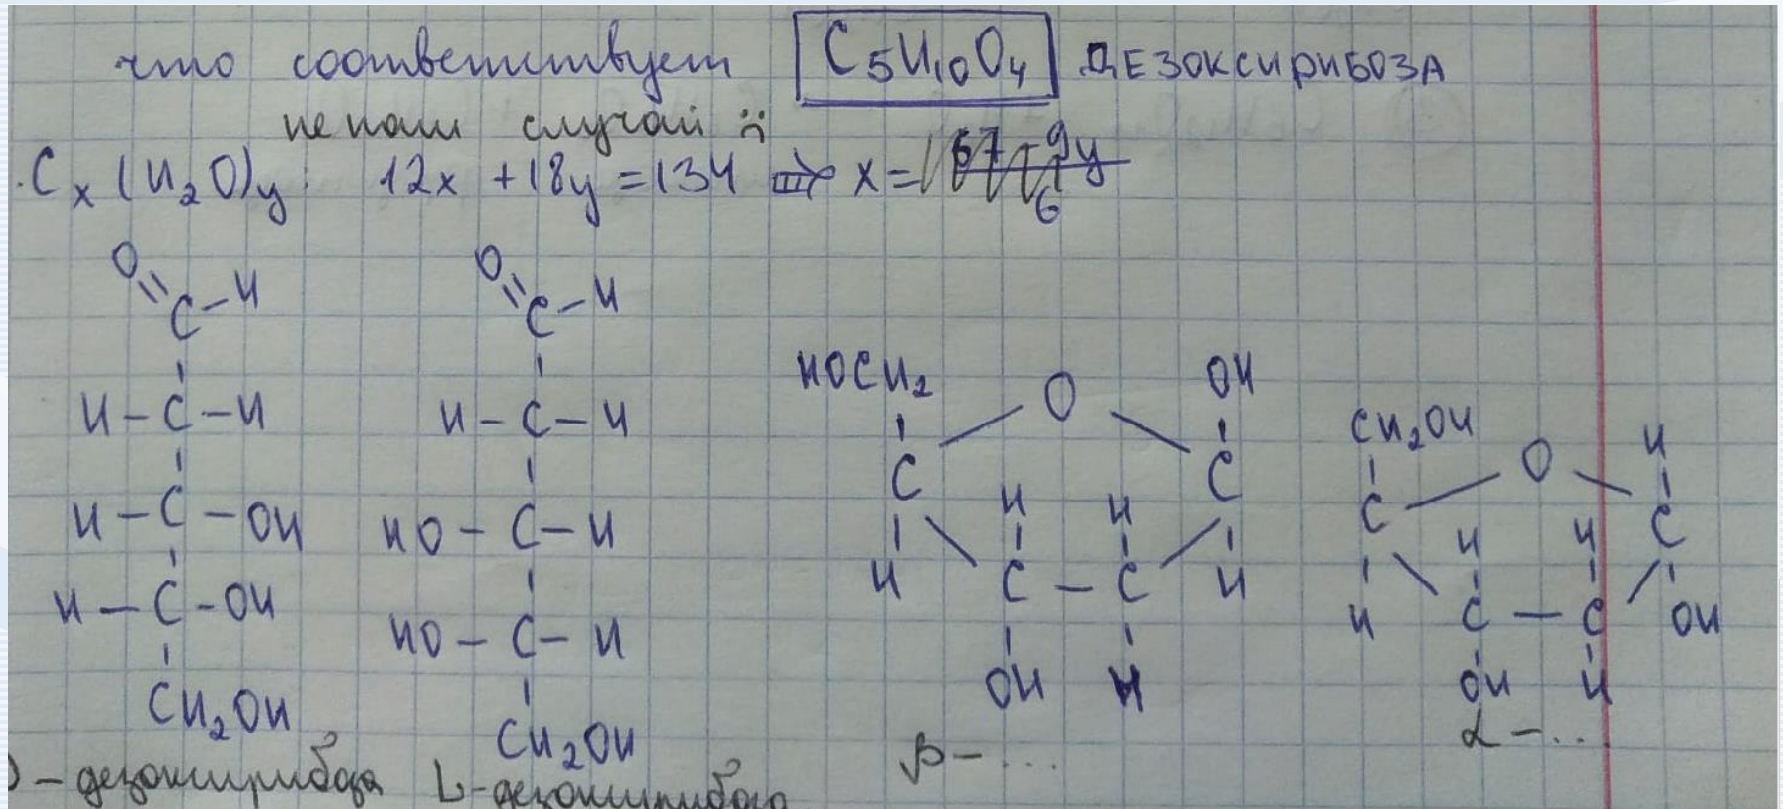 что соответствует C₅H₁₀O₄ ДЕЗОКСИРИБОЗА
не наш случай
Cₓ(H₂O)y: 12x + 18y = 134 ⇒ x =
O
C – H
H – C – H
H – C – OH
H – C – OH
CH₂OH
D – дезоксирибоза
O
C – H
H – C – H
HO – C – H
HO – C – H
CH₂OH
L – дезоксирибоза
HOCH₂ O OH
C H H C
H C – C H
OH H
β – ...
CH₂OH O H
C H H C
H C – C OH
OH H
α – ...